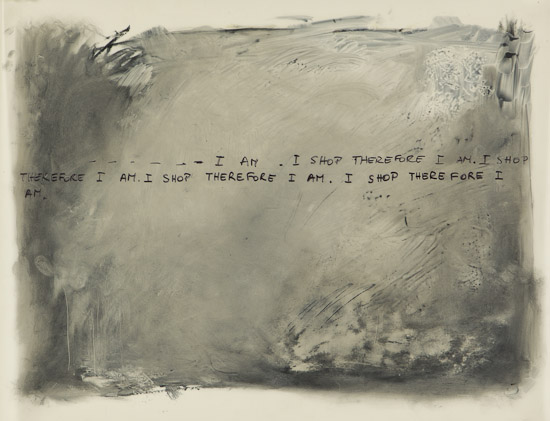 I AM . I SHOP THEREFORE I AM. I SHOP
THEREFORE I AM. I SHOP THEREFORE I AM. I SHOP THEREFORE I
AM.